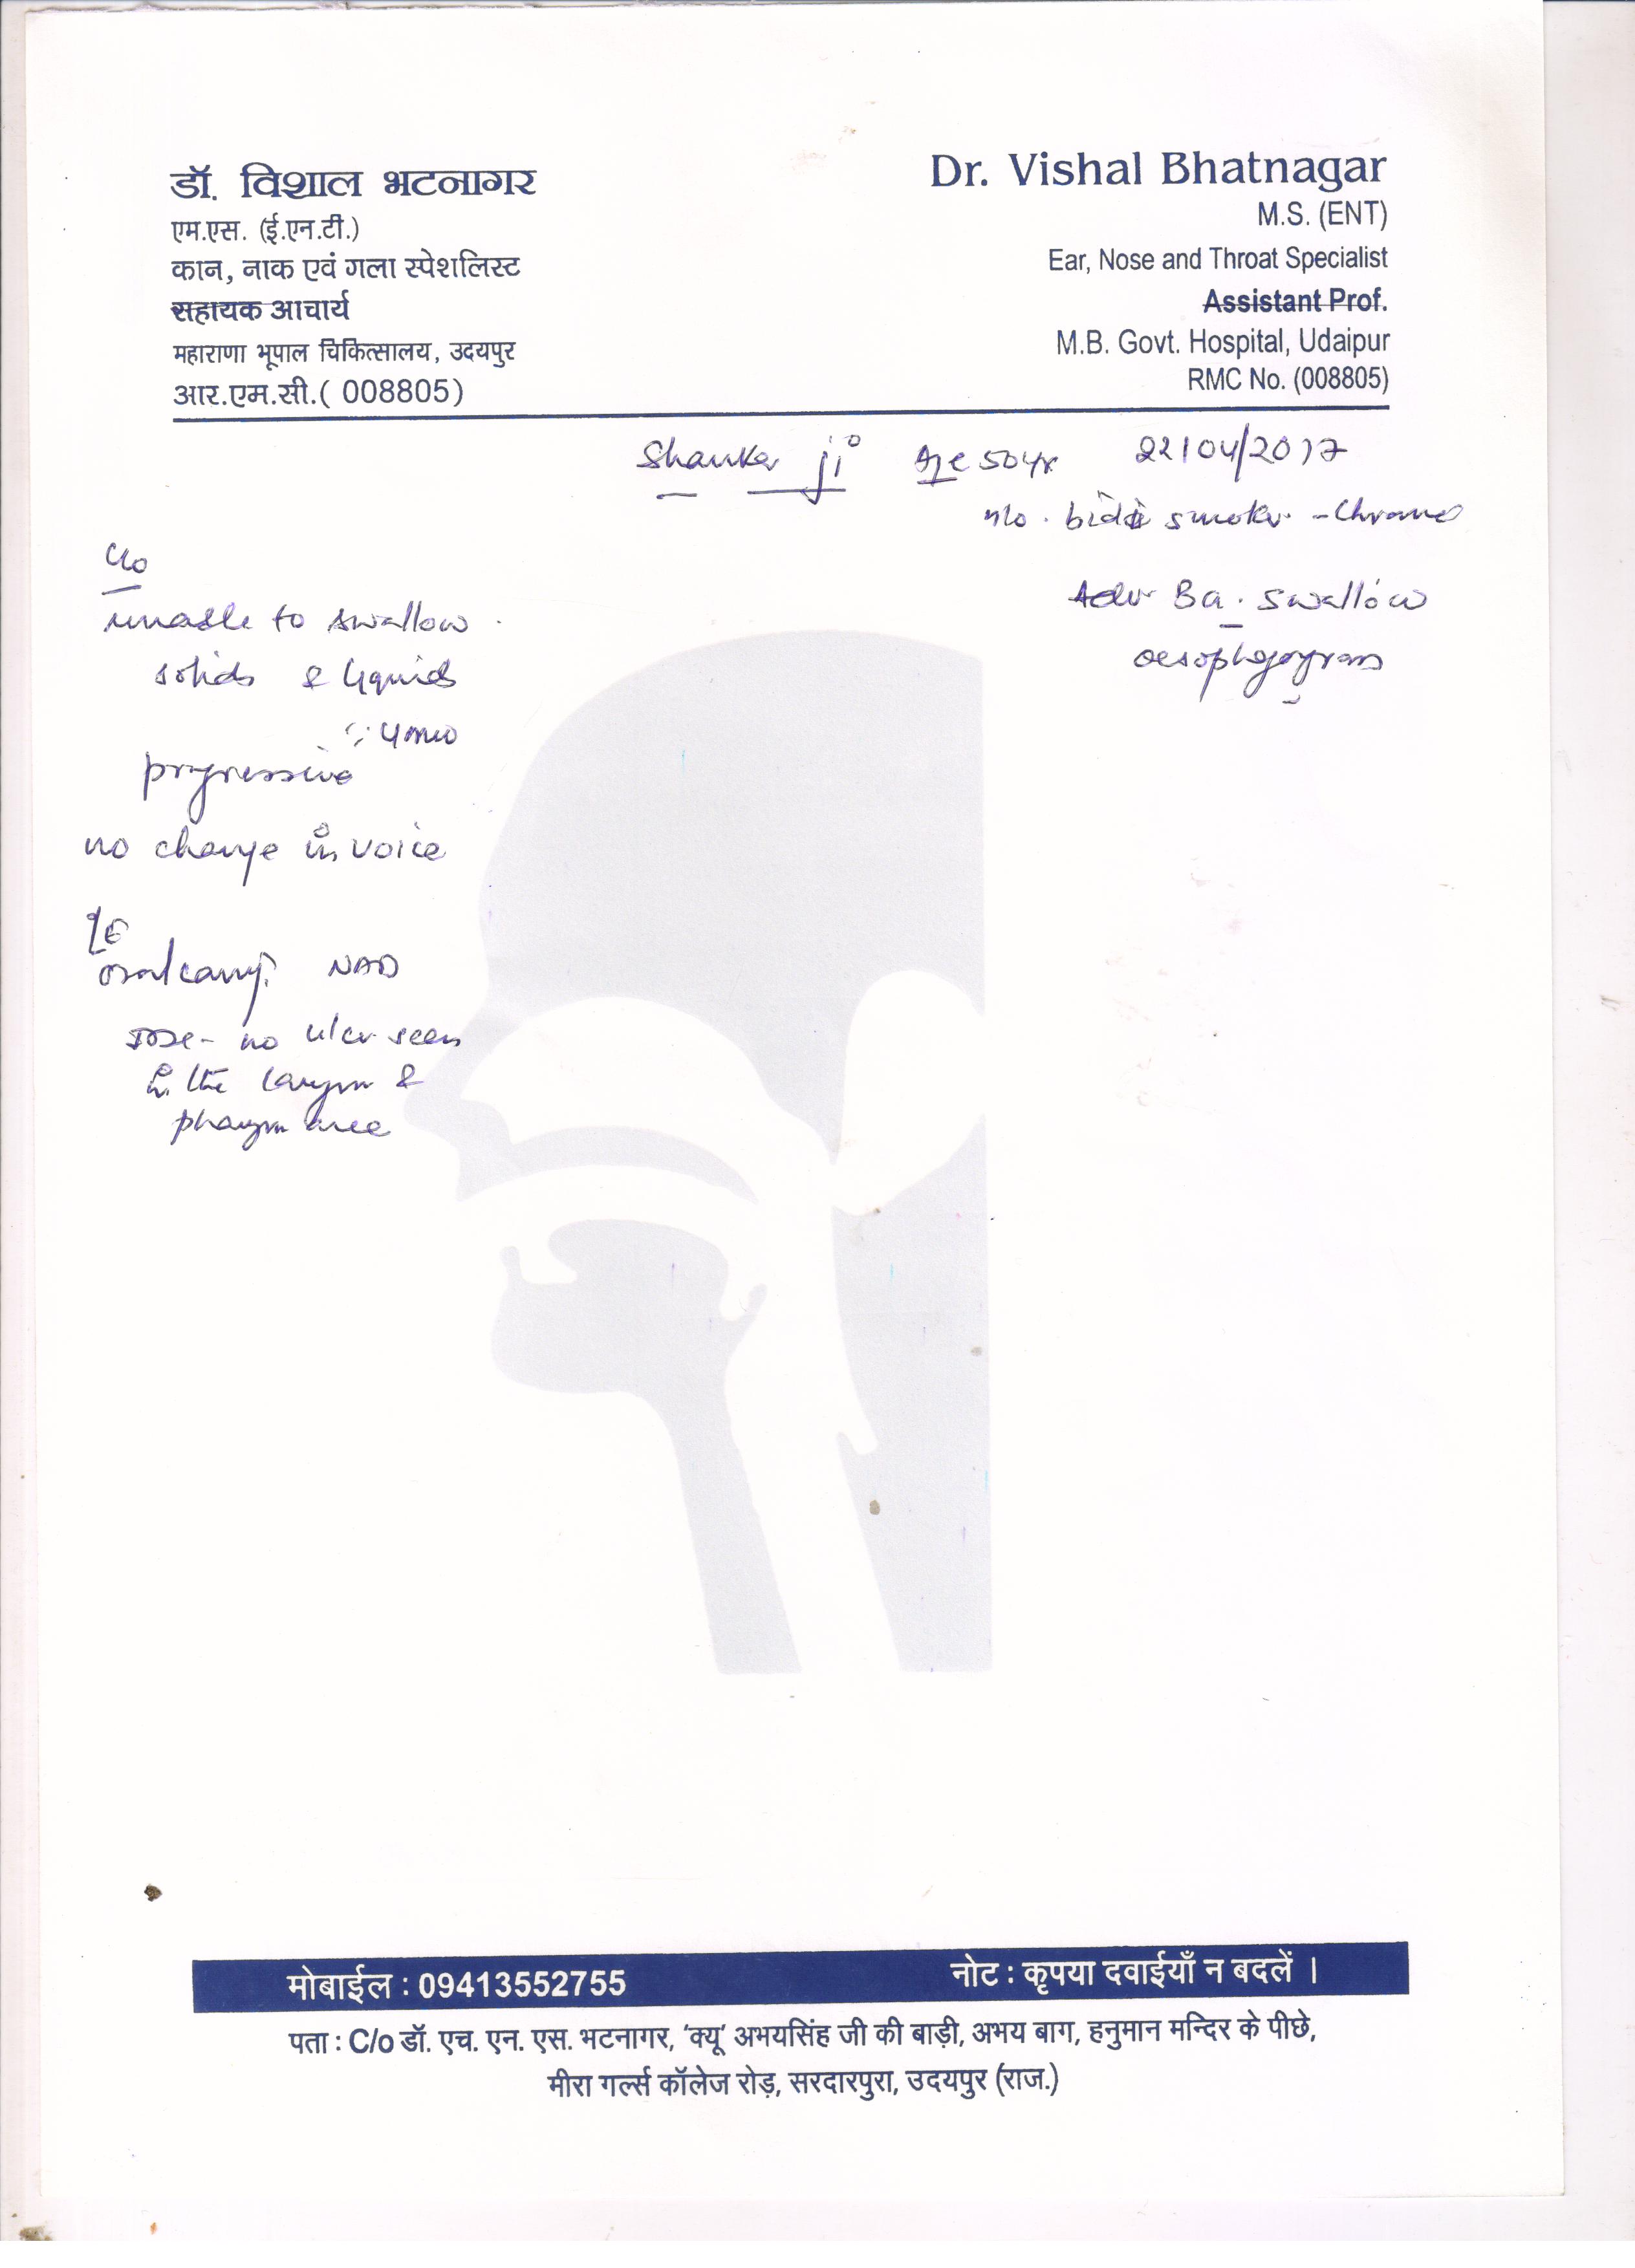 डॉ. विशाल भटनागर
एम.एस. (ई.एन.टी.)
कान, नाक एवं गला स्पेशलिस्ट
सहायक आचार्य
महाराणा भूपाल चिकित्सालय, उदयपुर
आर.एम.सी.( 008805)
Dr. Vishal Bhatnagar
M.S. (ENT)
Ear, Nose and Throat Specialist
Assistant Prof.
M.B. Govt. Hospital, Udaipur
RMC No. (008805)
Shanker ji Age 50yr 22/04/2017
bidi smoker - Chronic
Adv Ba. swallow
oesophagogram
c/o
unable to swallow
solids & liquids
4
progressive
no change in voice
O/E
oral cavity NAD
no ulcer seen
in the larynx &
pharynx area
मोबाईल : 09413552755
नोट : कृपया दवाईयाँ न बदलें ।
पता : C/o डॉ. एच. एन. एस. भटनागर, 'क्यू' अभयसिंह जी की बाड़ी, अभय बाग, हनुमान मन्दिर के पीछे,
मीरा गर्ल्स कॉलेज रोड़, सरदारपुरा, उदयपुर (राज.)